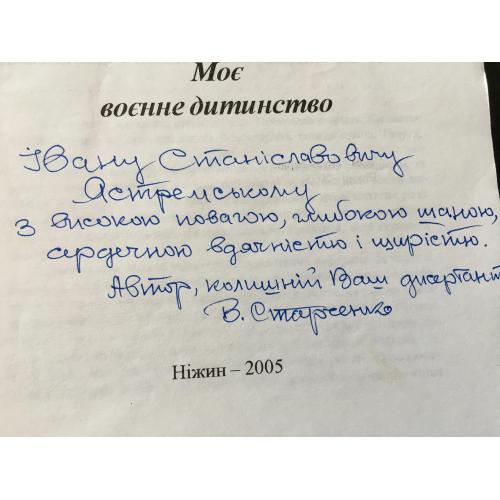 Моє
воєнне дитинство
Івану Станіславовичу
Ястремському
з високою повагою, глибокою шаною,
сердечною вдячністю і щирістю.
Автор, колишній Ваш дисертант
В.
Ніжин – 2005